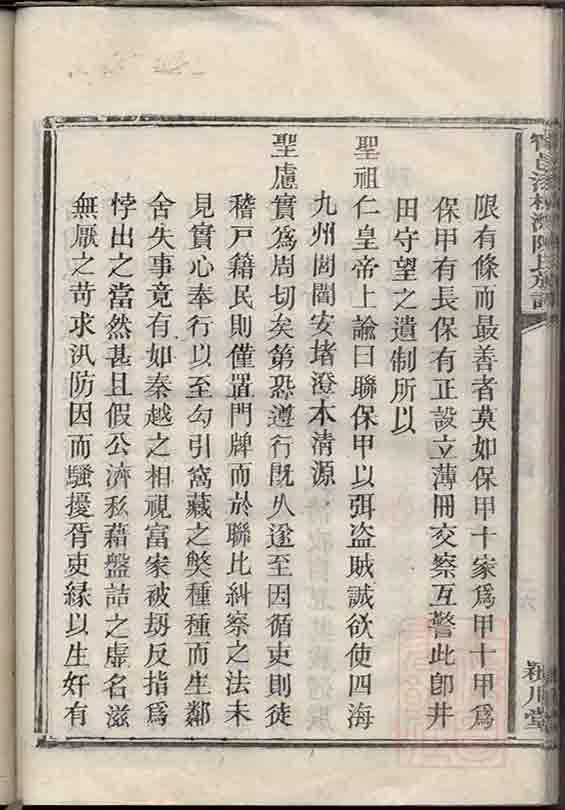 限有條而最善者莫如保甲十家爲甲十甲爲
保甲有長保有正設立薄冊交察互警此卽井
田守望之遺制所以
聖祖仁皇帝上諭曰聯保甲以弭盗賊誠欲使四海
九州閭閻安堵澄本清源
聖慮實爲周切矣第恐遵行既久遂至因循吏則徒
稽戸籍民則僅置門牌而於聯比糾察之法未
見實心奉行以至勾引窩藏之獘種種而生鄰
舍失事竟有如秦越之相視富家被刼反指爲
悖出之當然甚且假公濟私藉盤詰之虛名滋
無厭之苛求汛防因而騷擾胥吏緣以生奸有
陳氏族譜
潁川堂